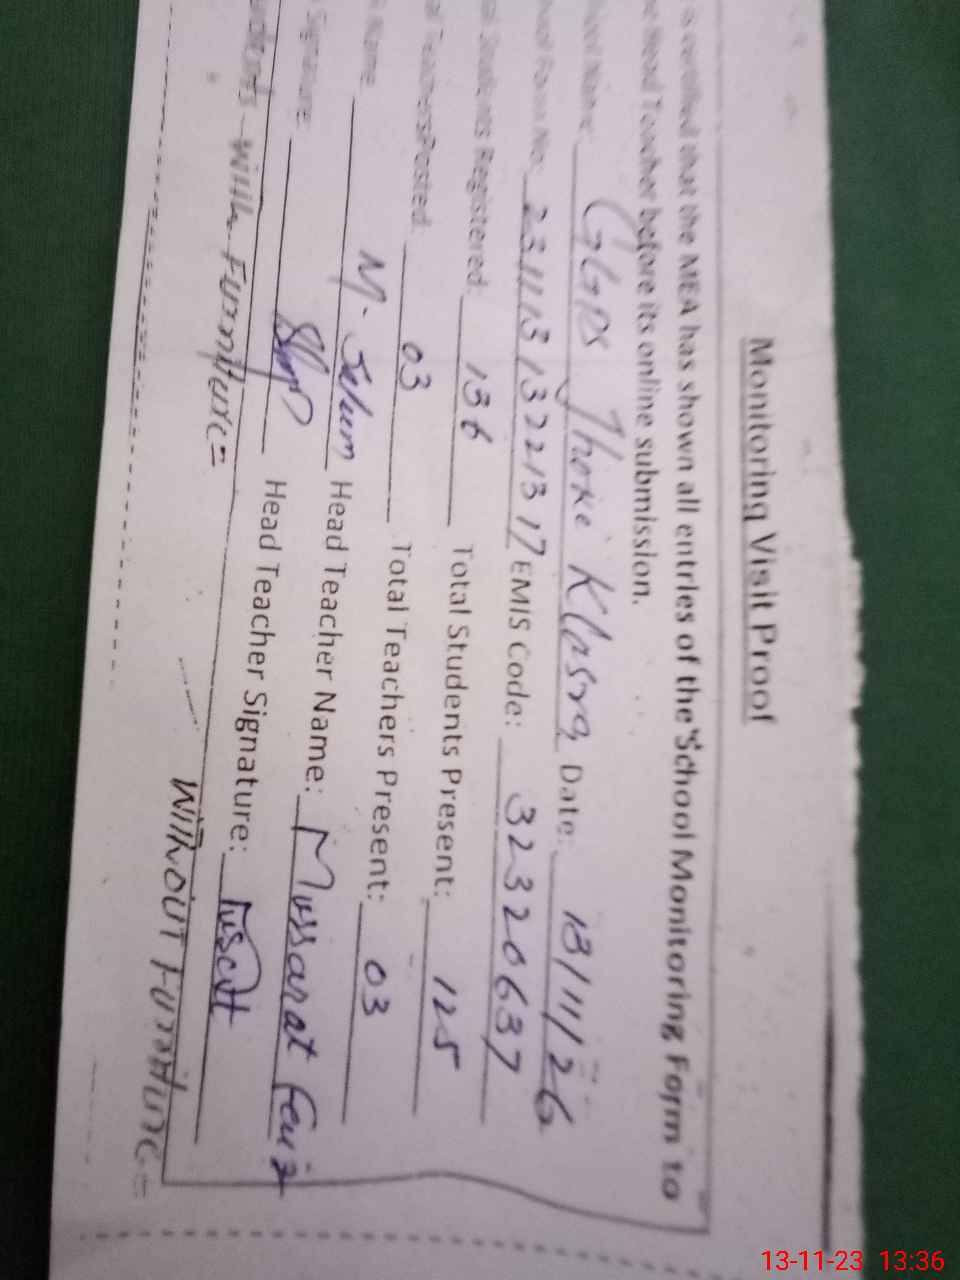 Monitoring Visit Proof
is certified that the MEA has shown all entries of the School Monitoring Form to
Head Teacher before its online submission.
Name: GGPS Thoke Klasra Date: 13/11/26
Form No: 23111313221317 EMIS Code: 32320637
Students Registered: 136 Total Students Present: 125
Teachers Posted: 03 Total Teachers Present: 03
Name: M. Head Teacher Name: Mussarat
Signature: Head Teacher Signature:
with Furniture= Without Furniture=
13-11-23 13:36